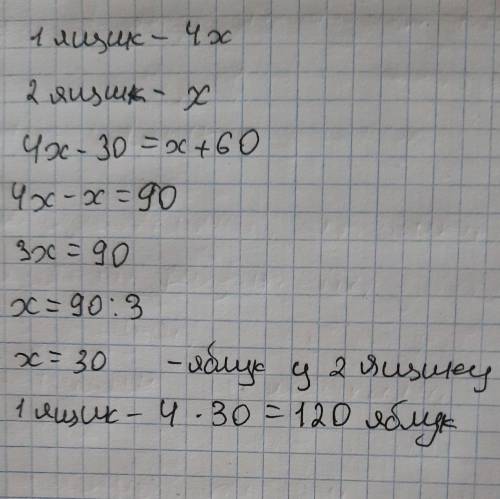 1 ящик - 4x
2 ящик - x
4x - 30 = x + 60
4x - x = 90
3x = 90
x = 90 : 3
x = 30 - яблук у 2 ящику
1 ящик - 4 · 30 = 120 яблук